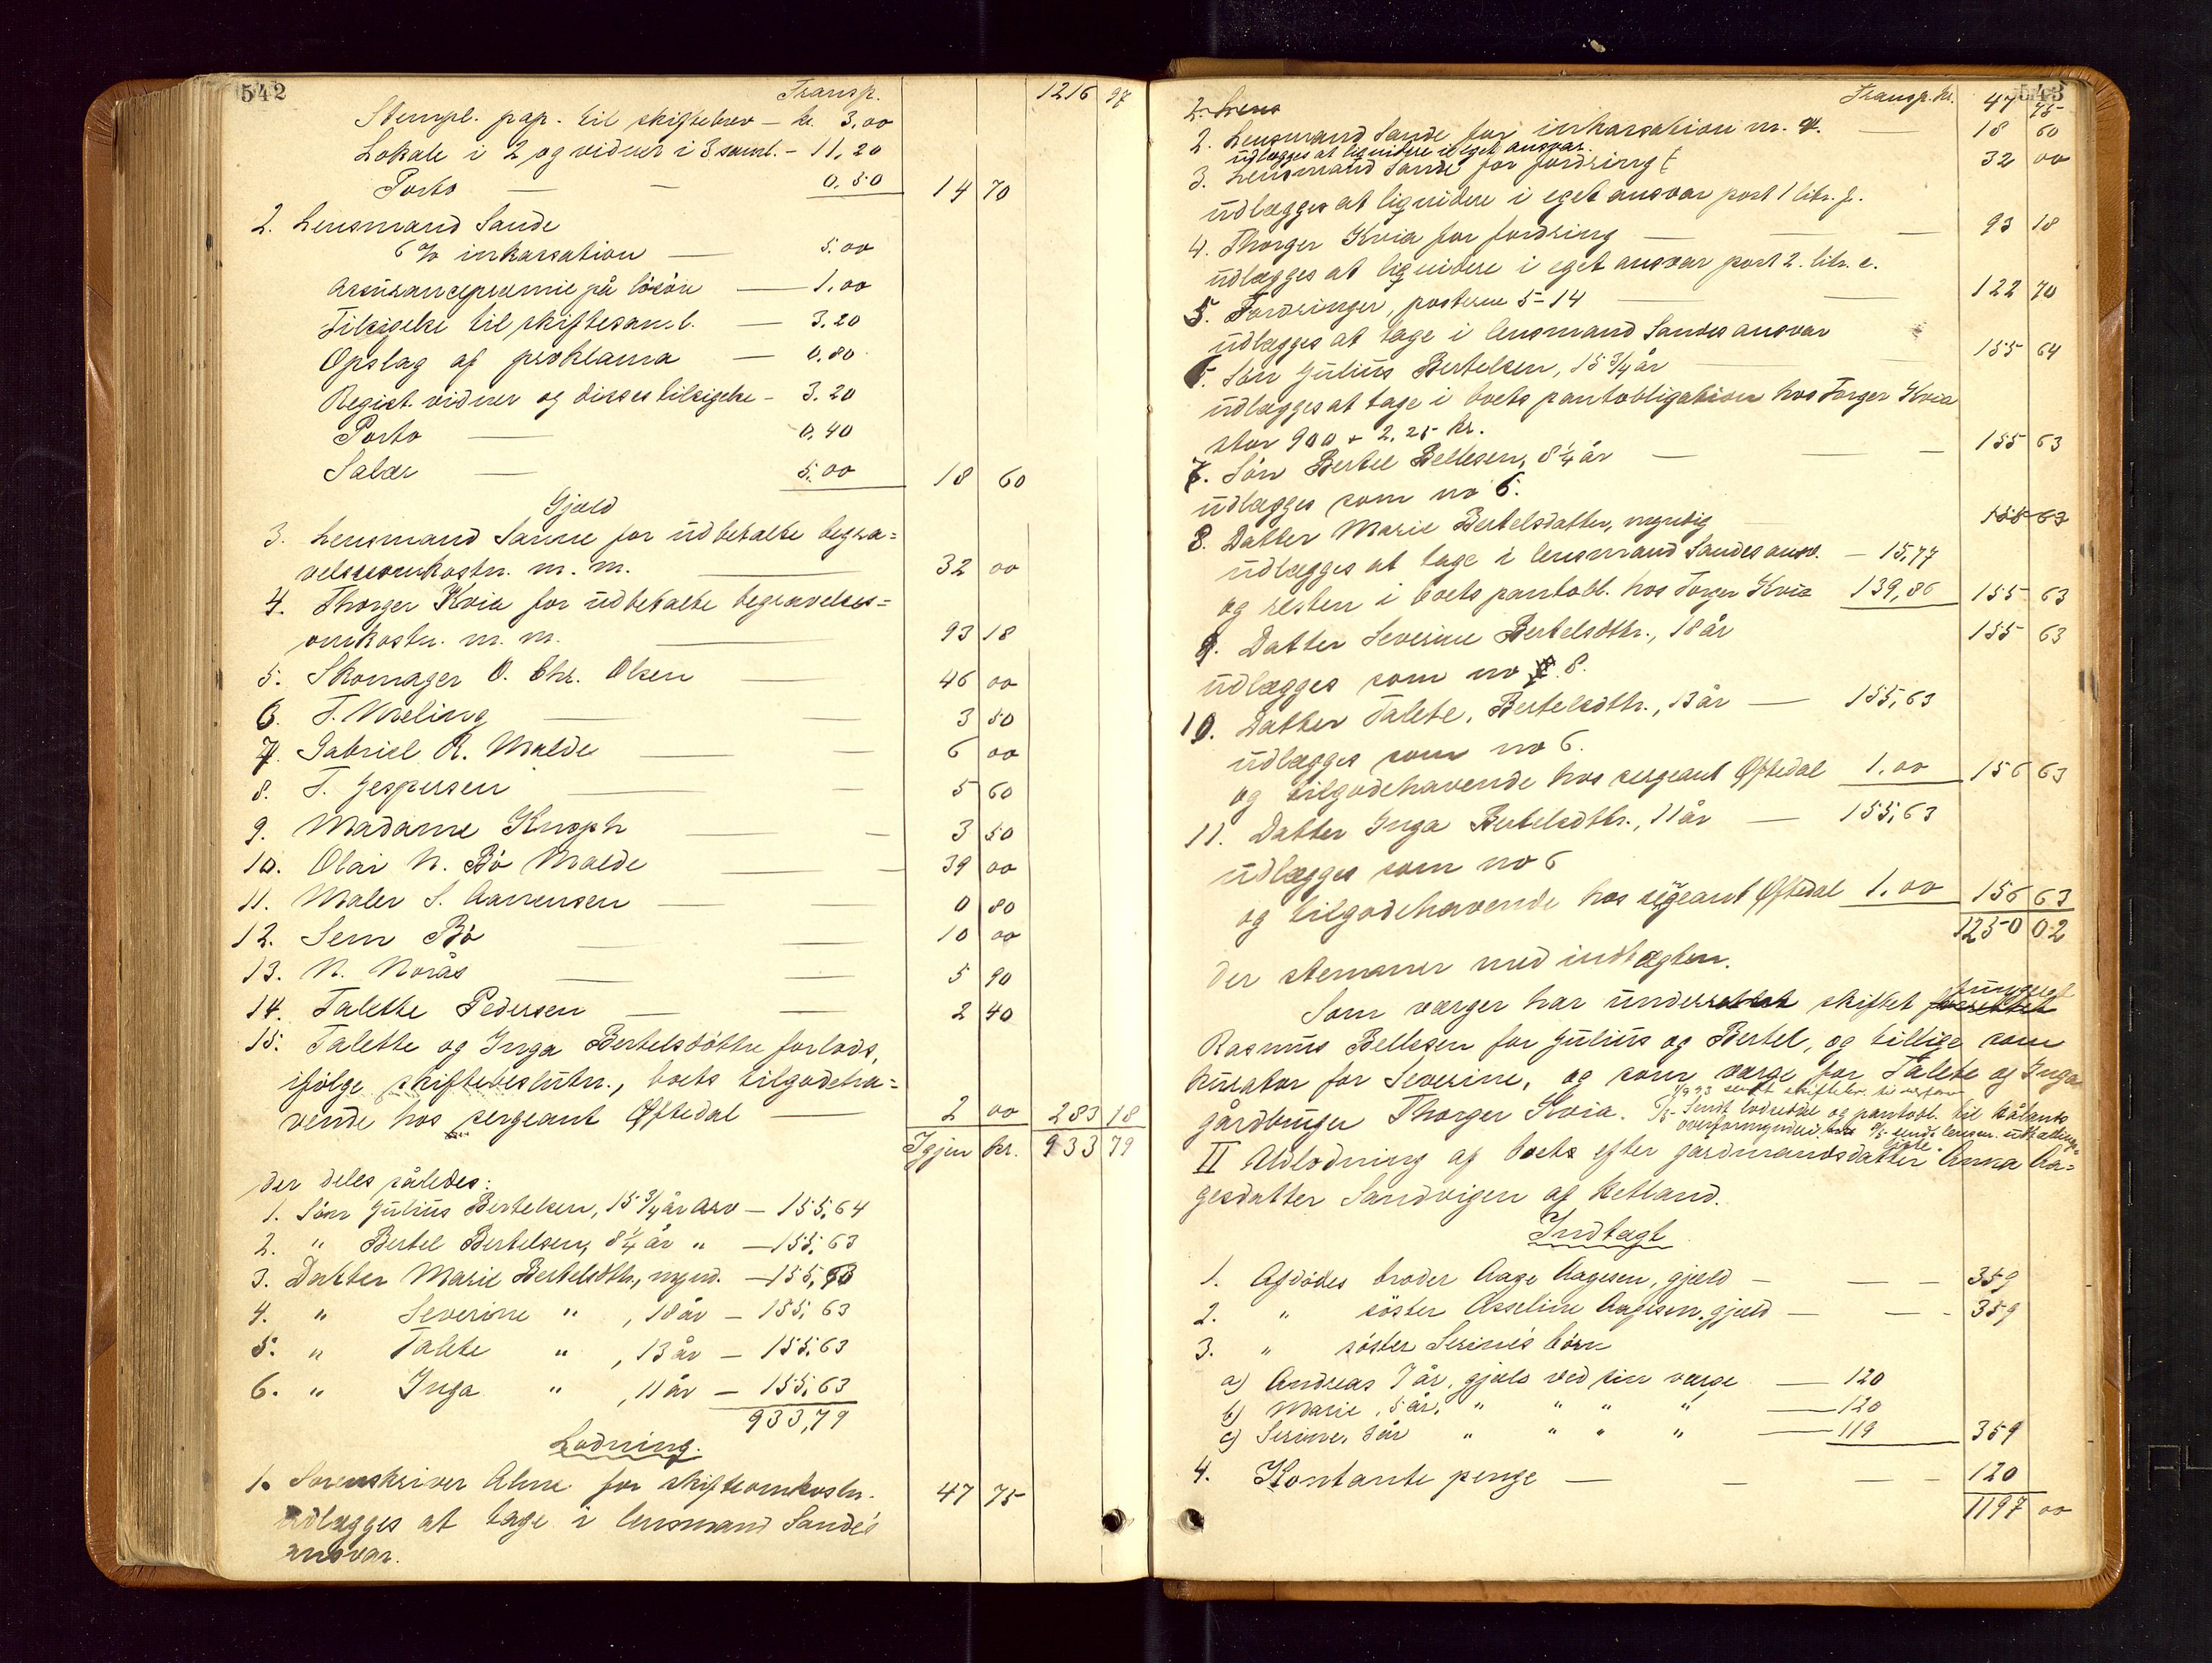 542
Transp. 1216 97
Stempl. pap. til skiftebrev – kr. 3,00
Lokale i 2 og vidner i 3 saml. – 11,20
Porto — — 0.50 14 70
2. Lensmand Sande
6 % inkassation — 5.00
Assurancepræmie på lösöre — 1.00
Tilsigelse til skiftesaml. — 3.20
Opslag af proklama — 0.80
Regist. vidner og disses tilsigelse – 3.20
Porto — 0.40
Salær — 5.00 18 60
Gjæld
3. Lensmand Sande for udbetalte begra=
velsesomkostn. m. m. — 32 00
4. Thorger Kvia for udbetalte begravelses=
omkostn. m. m. — 93 18
5. Skomager O. Chr. Olsen — 46 00
6. T. Mæling — — 3 50
7. Gabriel R. Malde — — 6 00
8. T. Jespersen — — 5 60
9. Madame Knoph — — 3 50
10. Olai N. Bö Malde — — 39 00
11. Maler S. Aanensen — — 0 80
12. Sem Bö — — 10 00
13. N. Norås — — 5 90
14. Talette Pedersen — — 2 40
15. Talette og Inga Bertelsdöttre forlods,
ifölge skiftebeslutn., boets tilgodeha=
vende hos sergeant Øftedal — 2 00 283 18
Igjen kr. 933 79
der deles således:
1. Sönn Julius Bertelsen, 15 3/4 år arv – 155,64
2. " Bertel Bertelsen, 8 1/4 år " – 155,63
3. Datter Marie Bertelsdtr., mynd. – 155,63
4. " Severine " , 18 år – 155,63
5. " Talete " , 13 år – 155,63
6. " Inga " , 11 år – 155,63
933,79
Lodning.
1. Sorenskriver Alme for skifteomkostn. 47 75
udlægges at tage i lensmand Sande's
ansvar.
543
2. Lens Transp. kr. 47 75
2. Lensmand Sande for inkassation m. v. — 18 60
udlægges at liqvidere i eget ansvar.
3. Lensmand Sande for fordring 32 00
udlægges at liqvidere i eget ansvar post 1 litr. f.
4. Thorger Kvia for fordring — — — 93 18
udlægges at liqvidere i eget ansvar post 2. litr. c.
5. Fordringer, posterne 5–14 — — 122 70
udlægges at tage i lensmand Sandes ansvar
6. Sön Julius Bertelsen, 15 3/4 år — 155 64
udlægges at tage i boets pantobligation hos Torger Kvia
stor 900 + 2.25 kr.
7. Sön Bertel Bellesen, 8 1/4 år — — — 155 63
udlægges som no 6.
8. Datter Marie Bertelsdatter, myndig 155 63
udlægges at tage i lensmand Sandes ansv. – 15,77
og resten i boets pantobl. hos Torger Kvia 139,86 155 63
9. Datter Severine Bertelsdtr., 18 år 155 63
udlægges som no 8.
10. Datter Talete, Bertelsdtr., 13 år — 155,63
udlægges som no 6.
og tilgodehavende hos sergeant Øftedal 1.00 156 63
11. Datter Inga Bertelsdtr., 11 år — 155,63
udlægges som no 6
og tilgodehavende hos sergeant Øftedal 1.00 156 63
1250 02
der stemmer med indtægten.
Som værger har under skiftet forrettet fungeret
Rasmus Bellesen for Julius og Bertel, og tillige som
kurator for Severine, og som værge for Talete og Inga
gårdbruger Thorger Kvia.
Sendt lodsedde og pantobl. til Hålands
II Udlodning af boets efter gårdmandsdatter Anna Aa=
gesdatter Sandvigen af Retland.
Indtægt
1. Afdödes broder Aage Aagesen, gjæld – — – 359
2. " söster Asseline Aagesen, gjæld – — – 359
3. " söster Serine's börn
a) Andreas 7 år, gjæld ved sin værge — 120
b) Marie, 5 år, " " " " — 120
c) Serine, 3 år " " " " — 119 359
4. Kontante penge — — — – 120
1197 00